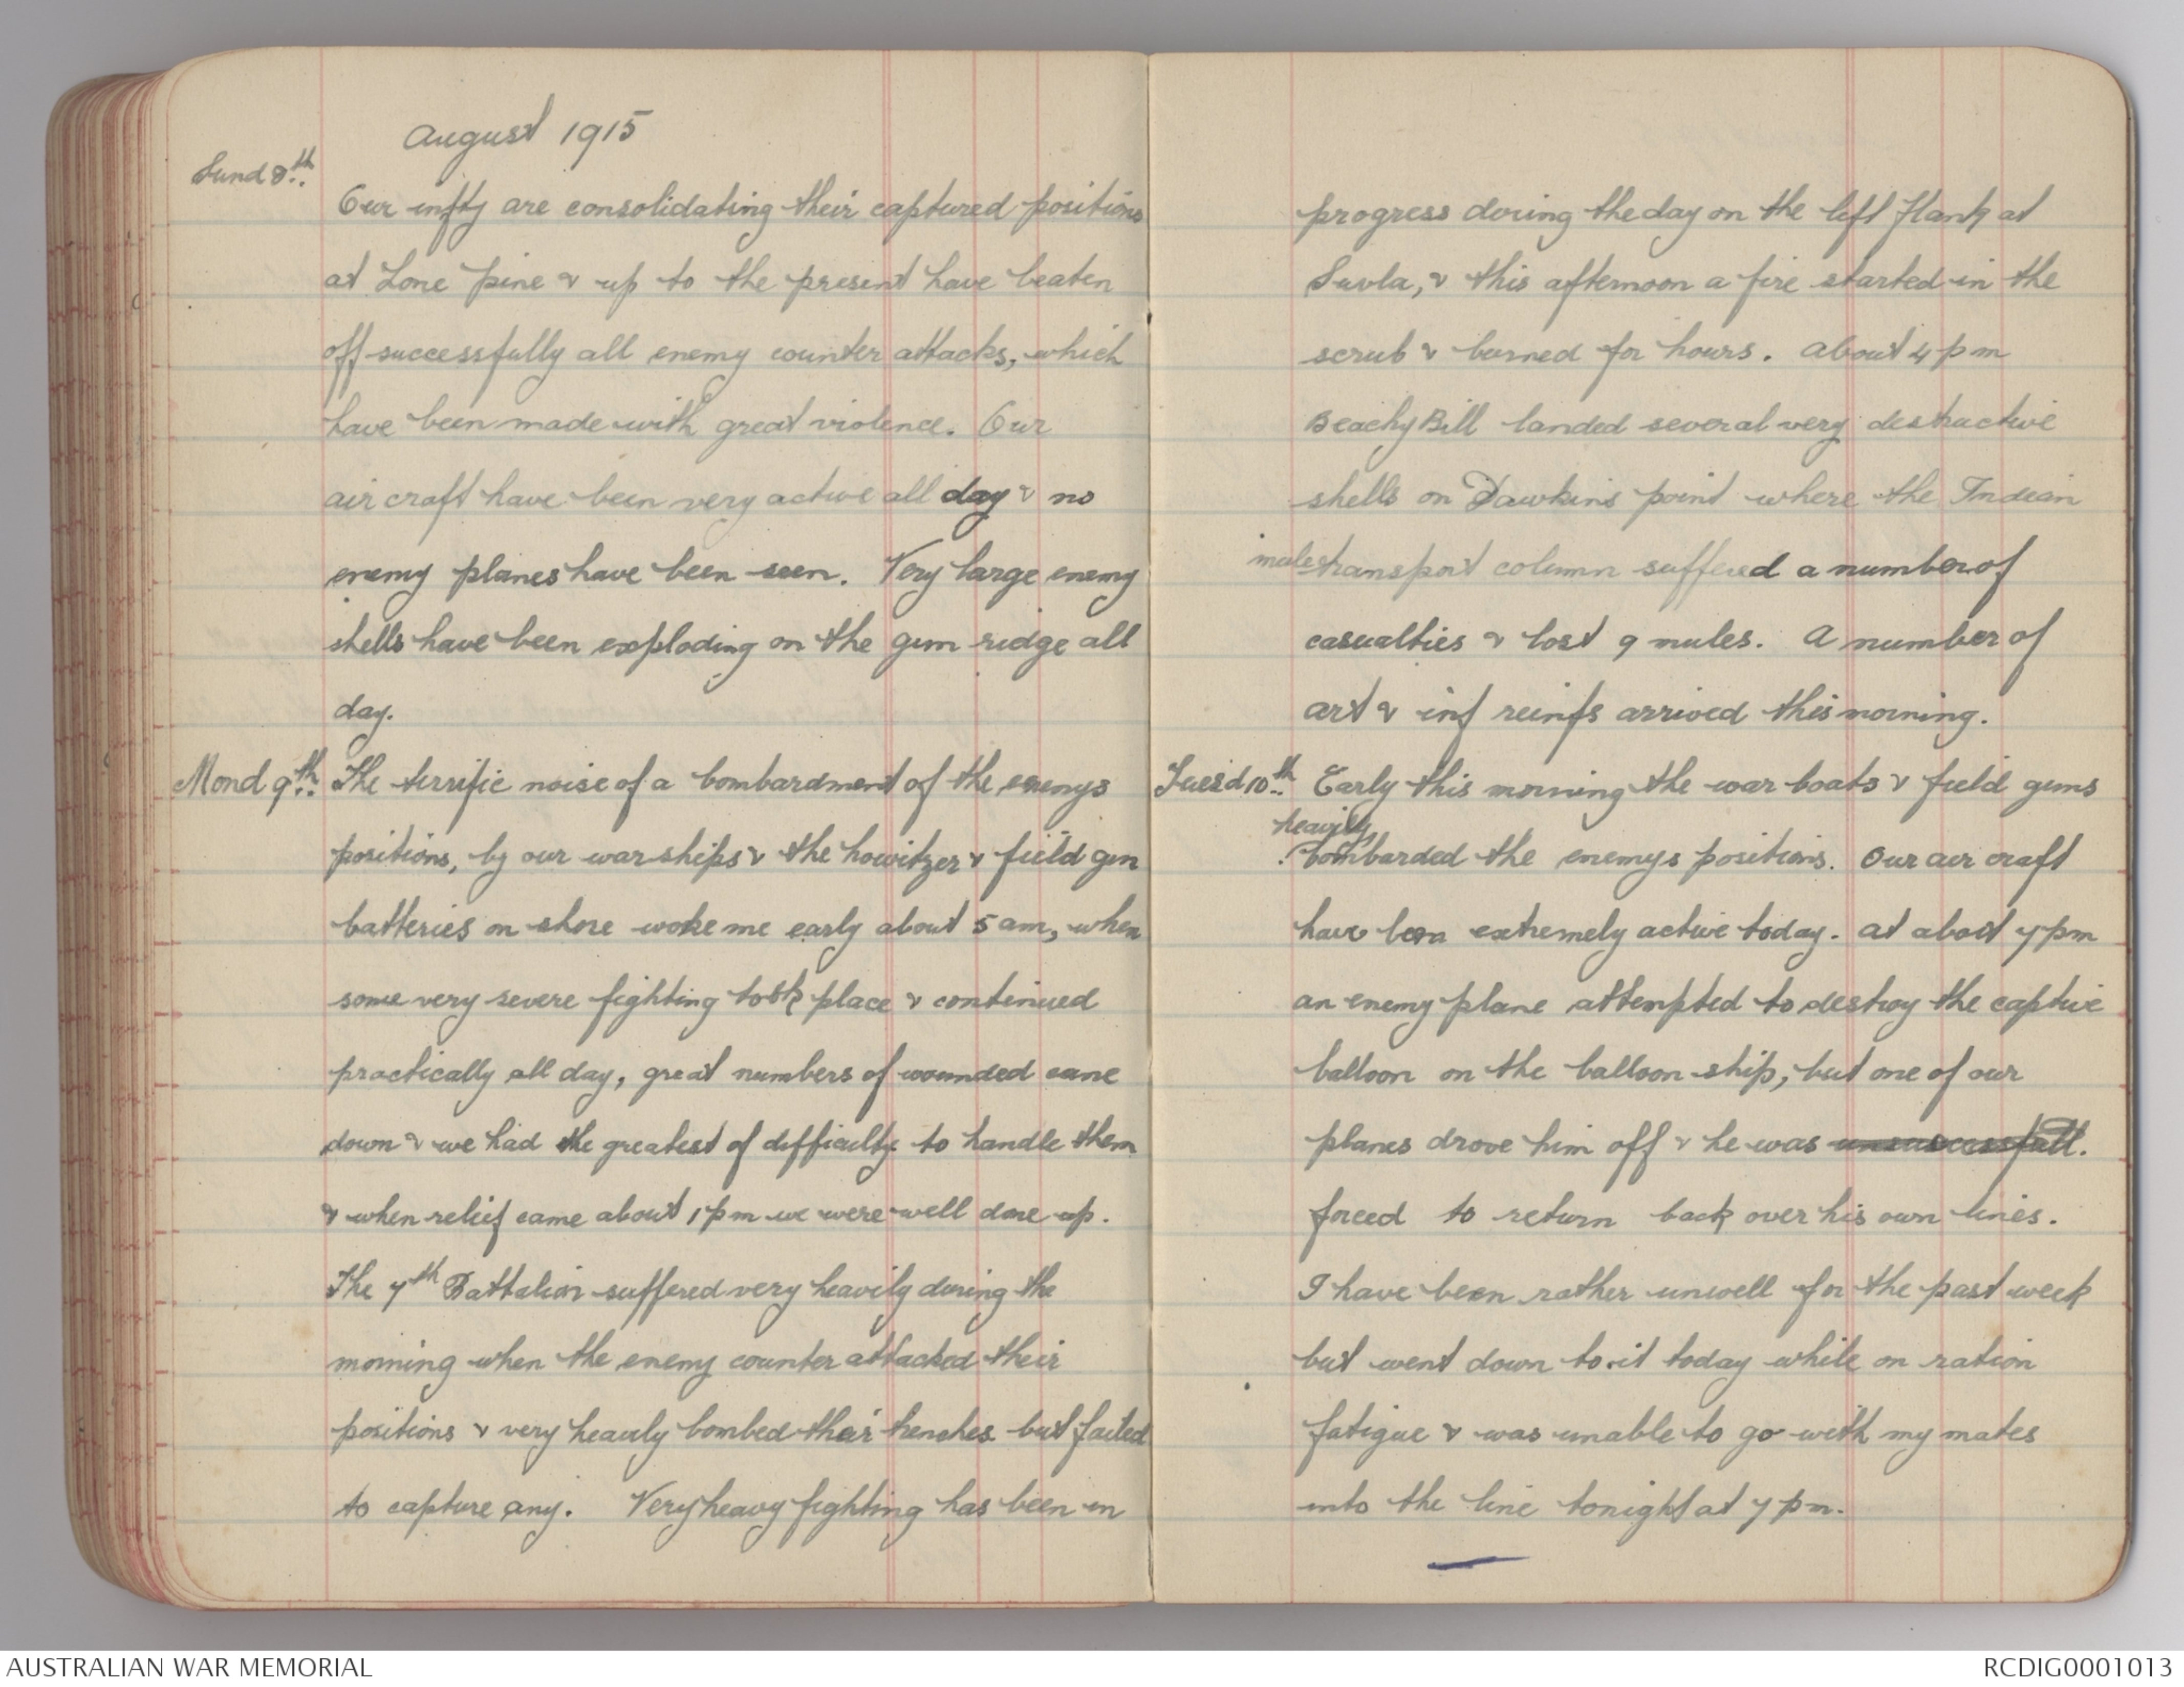 August 1915
Sund 8th..
Our infty are consolidating their captured positions
at Lone pine & up to the present have beaten
off successfully all enemy counter attacks, which
have been made with great violence. Our
air craft have been very active all day & no
enemy planes have been seen. Very large enemy
shells have been exploding on the gun ridge all
day.
Mond 9th.. The terrific noise of a bombardment of the enemys
positions, by our war ships & the howitzer & field gun
batteries on shore woke me early about 5 am, when
some very severe fighting took place & continued
practically all day, great numbers of wounded came
down & we had the greatest of difficulty to handle them
& when relief came about 1 pm we were well done up.
The 7th Battalion suffered very heavily during the
morning when the enemy counter attacked their
positions & very heavily bombed their trenches but failed
to capture any. Very heavy fighting has been in
progress during the day on the left flank at
Suvla, & this afternoon a fire started in the
scrub & burned for hours. About 4 pm
Beachy Bill landed several very destructive
shells on Dawkins point where the Indian
mule transport column suffered a number of
casualties & lost 9 mules. A number of
art & inf reinfs arrived this morning.
Tuesd 10th.. Early this morning the war boats & field guns
heavily
bombarded the enemys positions. Our air craft
have been extremely active today. At about 7 pm
an enemy plane attempted to destroy the captive
balloon on the balloon ship, but one of our
planes drove him off & he was unsuccessfull.
forced to return back over his own lines.
I have been rather unwell for the past week
but went down to it today while on ration
fatigue & was unable to go with my mates
into the line tonight at 7 pm.
AUSTRALIAN WAR MEMORIAL
RCDIG0001013